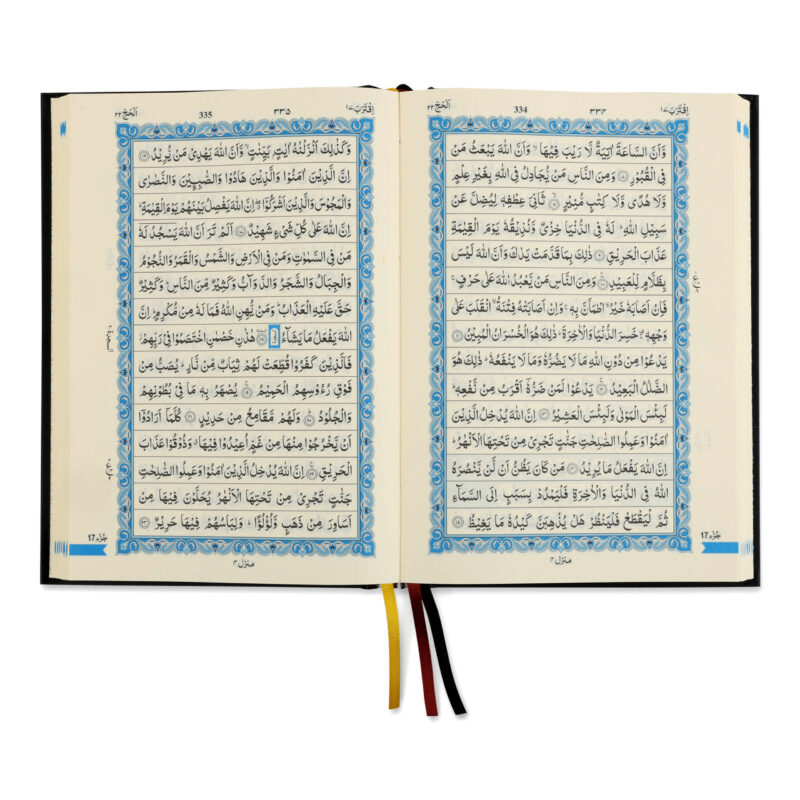 اِقْتَرَبَ ١٧ ٣٣۴ 334 اَلْحَجّ ٢٢
وَّاَنَّ السَّاعَةَ اٰتِيَةٌ لَّا رَيْبَ فِيْهَا ۙ وَاَنَّ اللّٰهَ يَبْعَثُ مَنْ
فِي الْقُبُوْرِ ۝ وَمِنَ النَّاسِ مَنْ يُّجَادِلُ فِي اللّٰهِ بِغَيْرِ عِلْمٍ
وَّلَا هُدًى وَّلَا كِتٰبٍ مُّنِيْرٍ ۝ ثَانِيَ عِطْفِهٖ لِيُضِلَّ عَنْ
سَبِيْلِ اللّٰهِ ؕ لَهٗ فِي الدُّنْيَا خِزْيٌ وَّنُذِيْقُهٗ يَوْمَ الْقِيٰمَةِ
عَذَابَ الْحَرِيْقِ ۝ ذٰلِكَ بِمَا قَدَّمَتْ يَدٰكَ وَاَنَّ اللّٰهَ لَيْسَ
بِظَلَّامٍ لِّلْعَبِيْدِ ۝ وَمِنَ النَّاسِ مَنْ يَّعْبُدُ اللّٰهَ عَلٰى حَرْفٍ ۚ
فَاِنْ اَصَابَهٗ خَيْرُ ۨاطْمَاَنَّ بِهٖ ۚ وَاِنْ اَصَابَتْهُ فِتْنَةُ ۨانْقَلَبَ عَلٰى
وَجْهِهٖ ۚ خَسِرَ الدُّنْيَا وَالْاٰخِرَةَ ؕ ذٰلِكَ هُوَ الْخُسْرَانُ الْمُبِيْنُ ۝
يَدْعُوْا مِنْ دُوْنِ اللّٰهِ مَا لَا يَضُرُّهٗ وَمَا لَا يَنْفَعُهٗ ؕ ذٰلِكَ هُوَ
الضَّلٰلُ الْبَعِيْدُ ۝ يَدْعُوْا لَمَنْ ضَرُّهٗٓ اَقْرَبُ مِنْ نَّفْعِهٖ ؕ
لَبِئْسَ الْمَوْلٰى وَلَبِئْسَ الْعَشِيْرُ ۝ اِنَّ اللّٰهَ يُدْخِلُ الَّذِيْنَ
اٰمَنُوْا وَعَمِلُوا الصّٰلِحٰتِ جَنّٰتٍ تَجْرِيْ مِنْ تَحْتِهَا الْاَنْهٰرُ ؕ
اِنَّ اللّٰهَ يَفْعَلُ مَا يُرِيْدُ ۝ مَنْ كَانَ يَظُنُّ اَنْ لَّنْ يَّنْصُرَهُ
اللّٰهُ فِي الدُّنْيَا وَالْاٰخِرَةِ فَلْيَمْدُدْ بِسَبَبٍ اِلَى السَّمَآءِ
ثُمَّ لْيَقْطَعْ فَلْيَنْظُرْ هَلْ يُذْهِبَنَّ كَيْدُهٗ مَا يَغِيْظُ ۝١٥
جُزء 17
مَنزل ۴
اِقْتَرَبَ ١٧ ٣٣۵ 335 اَلْحَجّ ٢٢
وَكَذٰلِكَ اَنْزَلْنٰهُ اٰيٰتٍۭ بَيِّنٰتٍ ۙ وَّاَنَّ اللّٰهَ يَهْدِيْ مَنْ يُّرِيْدُ ۝١٦
اِنَّ الَّذِيْنَ اٰمَنُوْا وَالَّذِيْنَ هَادُوْا وَالصّٰبِـِٕيْنَ وَالنَّصٰرٰى
وَالْمَجُوْسَ وَالَّذِيْنَ اَشْرَكُوْٓا ۖ اِنَّ اللّٰهَ يَفْصِلُ بَيْنَهُمْ يَوْمَ الْقِيٰمَةِ ؕ
اِنَّ اللّٰهَ عَلٰى كُلِّ شَيْءٍ شَهِيْدٌ ۝ اَلَمْ تَرَ اَنَّ اللّٰهَ يَسْجُدُ لَهٗ
مَنْ فِي السَّمٰوٰتِ وَمَنْ فِي الْاَرْضِ وَالشَّمْسُ وَالْقَمَرُ وَالنُّجُوْمُ
وَالْجِبَالُ وَالشَّجَرُ وَالدَّوَآبُّ وَكَثِيْرٌ مِّنَ النَّاسِ ؕ وَكَثِيْرٌ
حَقَّ عَلَيْهِ الْعَذَابُ ؕ وَمَنْ يُّهِنِ اللّٰهُ فَمَا لَهٗ مِنْ مُّكْرِمٍ ؕ اِنَّ
اللّٰهَ يَفْعَلُ مَا يَشَآءُ ۝ هٰذٰنِ خَصْمٰنِ اخْتَصَمُوْا فِيْ رَبِّهِمْ ؗ
فَالَّذِيْنَ كَفَرُوْا قُطِّعَتْ لَهُمْ ثِيَابٌ مِّنْ نَّارٍ ؕ يُصَبُّ مِنْ
فَوْقِ رُءُوْسِهِمُ الْحَمِيْمُ ۝ يُصْهَرُ بِهٖ مَا فِيْ بُطُوْنِهِمْ
وَالْجُلُوْدُ ۝ وَلَهُمْ مَّقَامِعُ مِنْ حَدِيْدٍ ۝ كُلَّمَآ اَرَادُوْٓا
اَنْ يَّخْرُجُوْا مِنْهَا مِنْ غَمٍّ اُعِيْدُوْا فِيْهَا ۗ وَذُوْقُوْا عَذَابَ
الْحَرِيْقِ ۝ اِنَّ اللّٰهَ يُدْخِلُ الَّذِيْنَ اٰمَنُوْا وَعَمِلُوا الصّٰلِحٰتِ
جَنّٰتٍ تَجْرِيْ مِنْ تَحْتِهَا الْاَنْهٰرُ يُحَلَّوْنَ فِيْهَا مِنْ
اَسَاوِرَ مِنْ ذَهَبٍ وَّلُؤْلُؤًا ؕ وَلِبَاسُهُمْ فِيْهَا حَرِيْرٌ ۝٢٣
السجدة ٦
جُزء 17
مَنزل ۴